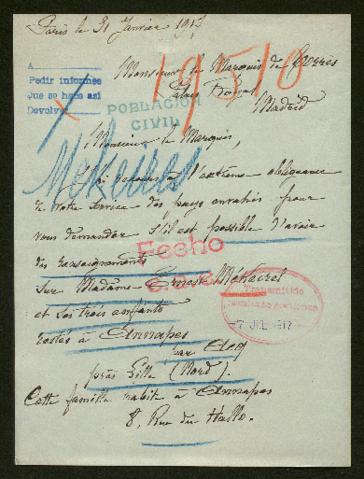 Paris le 31 Janvier 1917
19510
Monsieur le Marquis de
Madrid
A
Pedir informes
Que se hace así
Devolver
POBLACION
CIVIL
Monsieur le Marquis,
J'ai recours à l'extrême obligeance
de votre service des pays envahis pour
vous demander s'il est possible d'avoir
des renseignements
Fecho
sur Madame Ernest
Transmitido
et ses trois enfants
7 JUL 1917
restés à Annapes
par Ascq
près Lille (Nord).
Cette famille habite à Annapes
8, Rue du